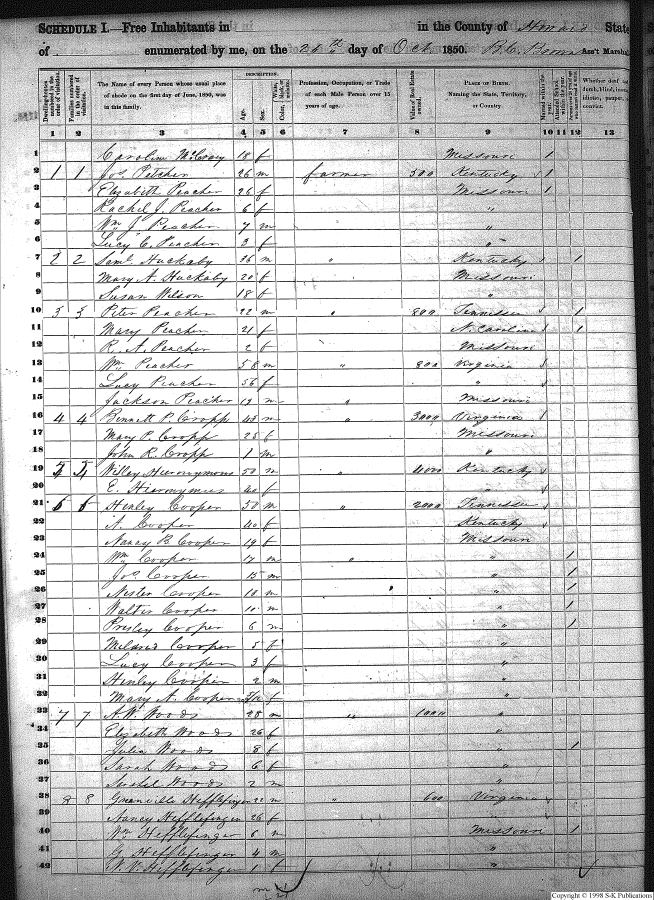 SCHEDULE I.—Free Inhabitants in in the County of Howard State
of enumerated by me, on the 26th day of Oct 1850. Ass't Marshal
DESCRIPTION.
Dwelling-houses numbered in the order of visitation.
Families numbered in the order of visitation.
The Name of every Person whose usual place of abode on the first day of June, 1850, was in this family.
Age.
Sex.
White, black, or mulatto.
Color,
Profession, Occupation, or Trade of each Male Person over 15 years of age.
Value of Real Estate owned.
PLACE OF BIRTH.
Naming the State, Territory, or Country.
Married within the year.
Whether deaf and dumb, blind, insane, idiotic, pauper, or convict.
1 2 3 4 5 6 7 8 9 10 11 12 13
1 Caroline McCrary 18 f Missouri 1
2 1 1 Jos Peacher 26 m farmer 500 Kentucky 1
3 Elizabeth Peacher 26 f Missouri 1
4 Rachel J. Peacher 6 f "
5 Wm J. Peacher 7 m "
6 Lucy C. Peacher 3 f "
7 2 2 Saml Huckaby 36 m " Kentucky 1
8 Mary A. Huckaby 20 f Missouri
9 Susan Wilson 18 f "
10 3 3 Peter Peacher 22 m " 800 Tennessee 1
11 Mary Peacher 21 f N. Carolina 1
12 R. A. Peacher 2 f Missouri
13 Wm Peacher 58 m " 800 Virginia
14 Lucy Peacher 56 f "
15 Jackson Peacher 19 m " Missouri
16 4 4 Bennett P. Cropp 45 m " 3000 Virginia
17 Mary P. Cropp 25 f Missouri
18 John R. Cropp 1 m "
19 5 5 Wiley Hieronymous 50 m " 4000 Kentucky
20 E. Hieronymus 40 f "
21 6 6 Henley Cooper 50 m " 2000 Tennessee
22 A. Cooper 40 f Kentucky
23 Nancy B. Cooper 19 f Missouri
24 Wm Cooper 17 m " " 1
25 Jos. Cooper 15 m " 1
26 Nester Cooper 10 m " 1
27 Walter Cooper 10 m " 1
28 Presley Cooper 6 m " 1
29 Mildred Cooper 5 f "
30 Lucy Cooper 3 f "
31 Henley Cooper 2 m "
32 Mary A. Cooper f "
33 7 7 A. W. Woods 28 m " 1000 "
34 Elizabeth Woods 26 f "
35 Julia Woods 8 f " 1
36 Sarah Woods 6 f "
37 Woods 2 m "
38 8 8 Granville Hefflefinger 22 m " 600 Virginia
39 Nancy Hefflefinger 26 f "
40 Wm Hefflefinger 6 m Missouri 1
41 G. Hefflefinger 4 m "
42 Hefflefinger 1 f "
Copyright © 1998 S-K Publications